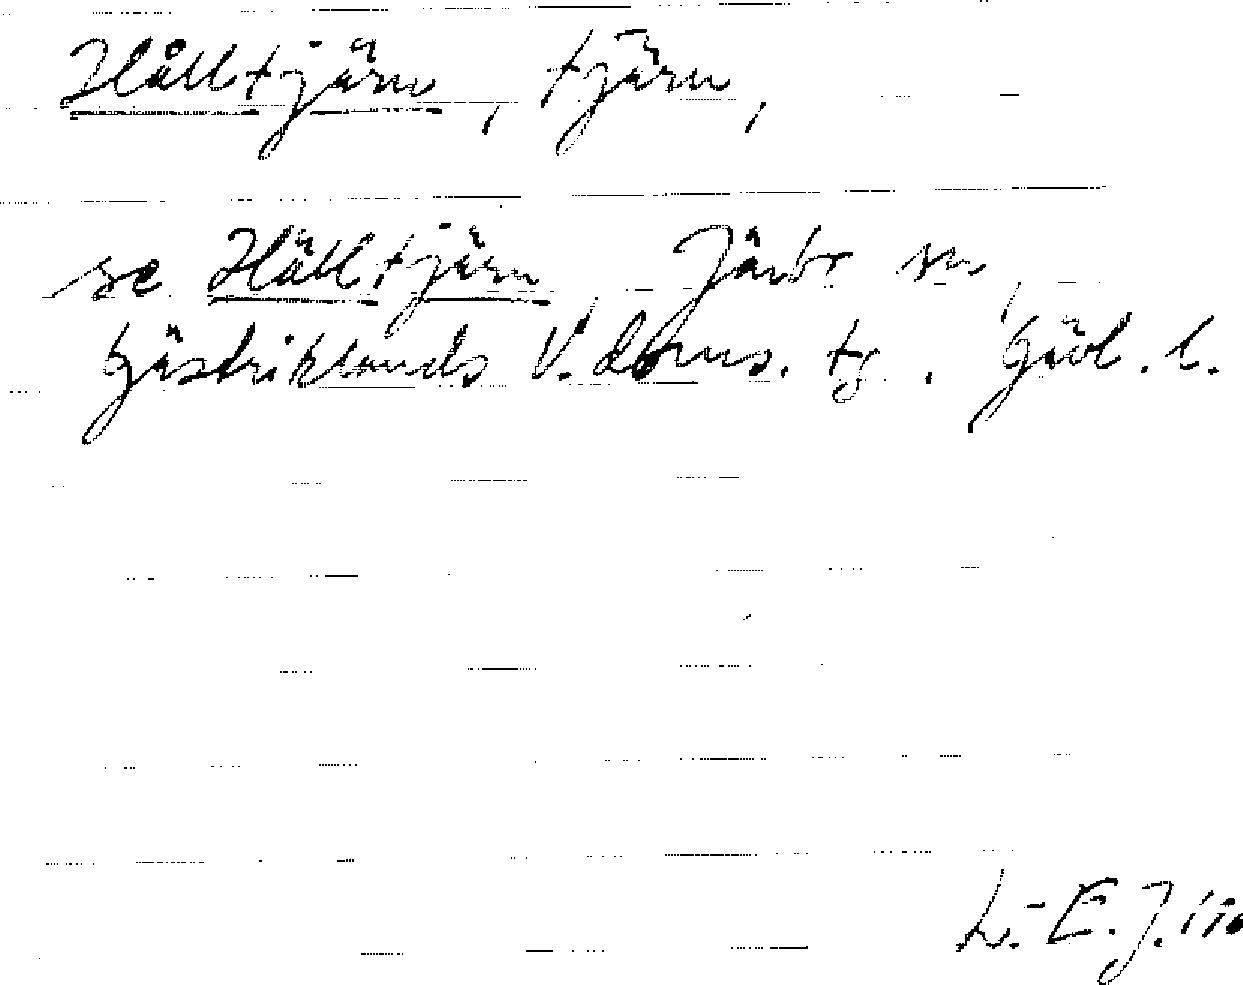 Hålltjärn, tjärn,
se Hälltjärn, Järbo sn,
Gästriklands V. doms. tg. Gävl. l.
L.-E. J.